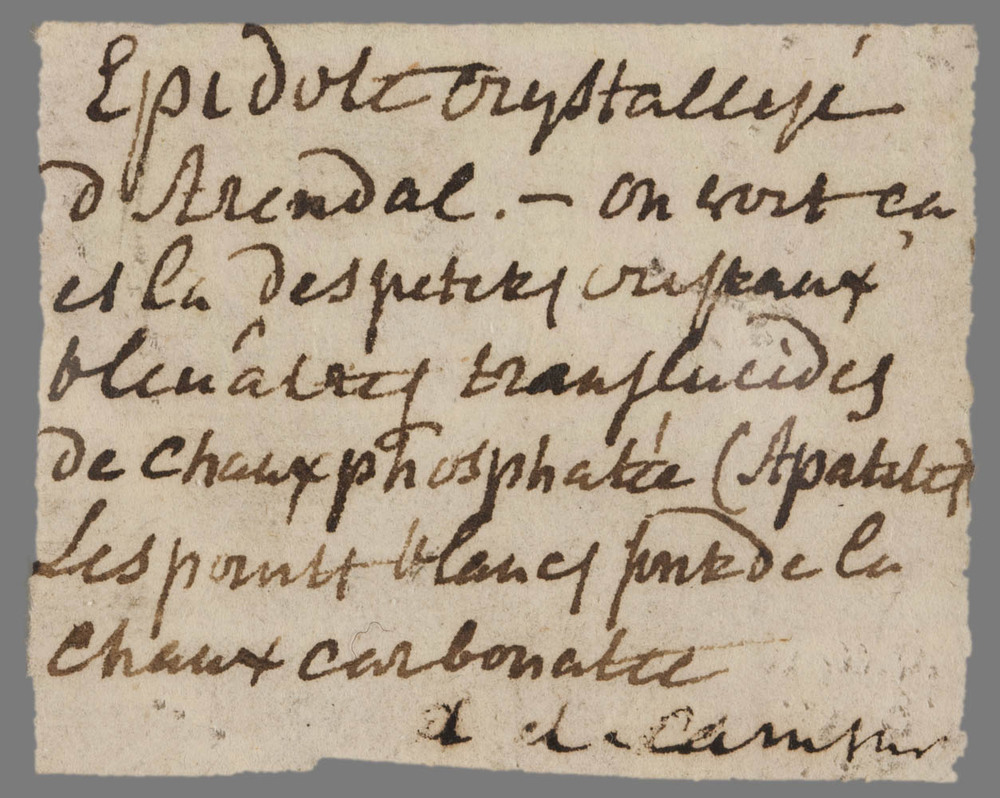 Epidote crystallisé
d'Arendal. — on voit ça
et la des petites cristaux
bleuâtres translucides
de chaux phosphatée (Apatite)
Les points blancs sont de la
chaux carbonatée